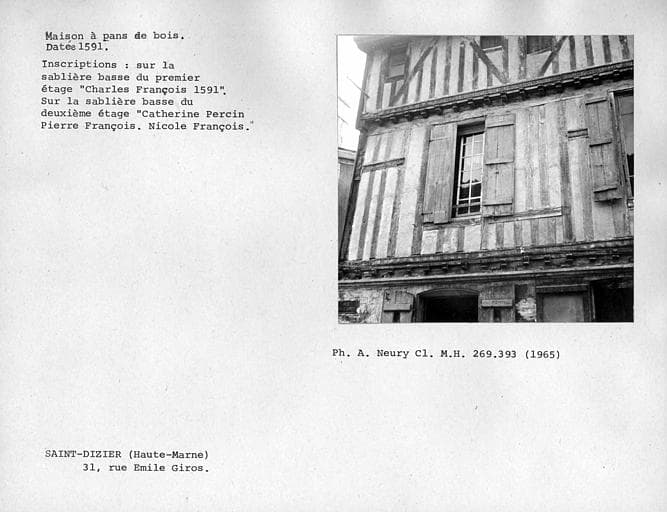 Maison à pans de bois.
Datée 1591.
Inscriptions : sur la
sablière basse du premier
étage "Charles François 1591".
Sur la sablière basse du
deuxième étage "Catherine Percin
Pierre François. Nicole François."
Ph. A. Neury Cl. M.H. 269.393 (1965)
SAINT-DIZIER (Haute-Marne)
31, rue Emile Giros.